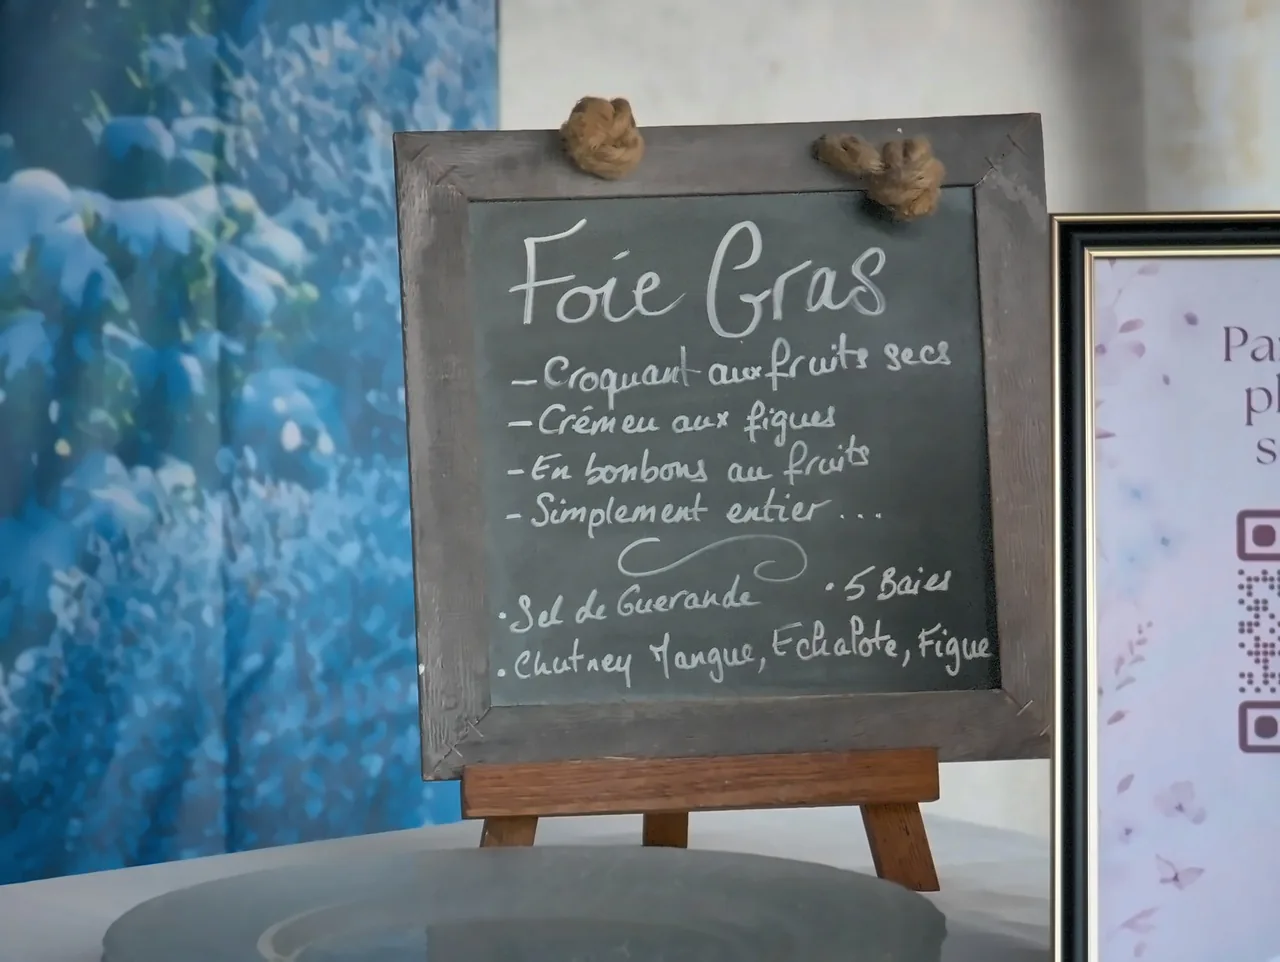 Foie Gras
- Croquant aux fruits secs
- Crémeu aux figues
- En bonbons au fruits
- Simplement entier ...
• Sel de Guerande • 5 Baies
• Chutney Mangue, Echalote, Figue